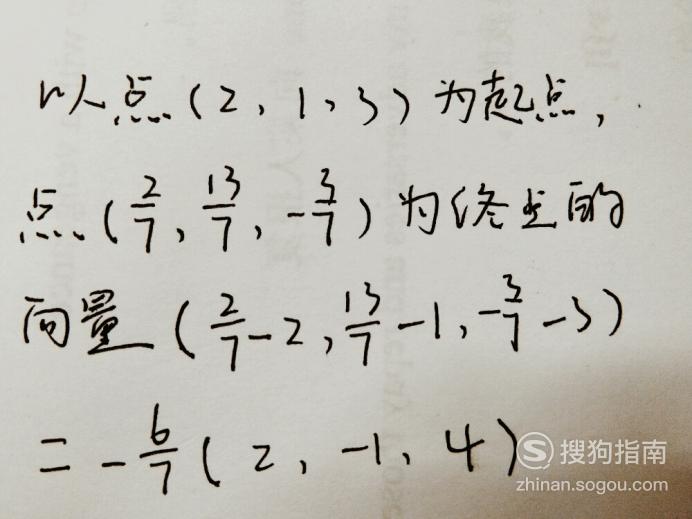 以点(2,1,3)为起点,
点(2/7,13/7,-3/7)为终点的
向量(2/7-2,13/7-1,-3/7-3)
=-6/7(2,-1,4)
搜狗指南
zhinan.sogou.com